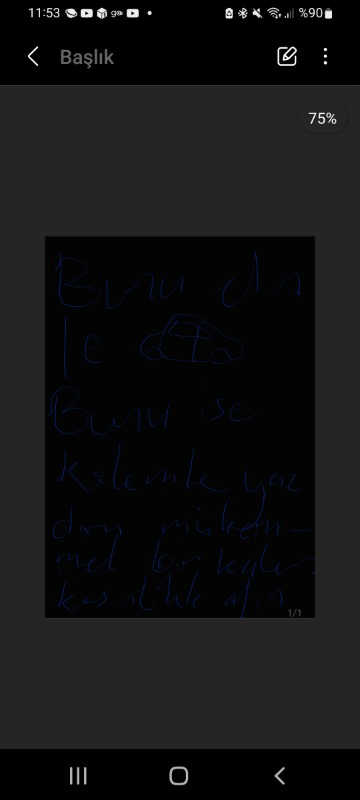 11:53
%90
Başlık
75%
Bunu elin
le
Bunu ise
kalemle yaz
dım mükem-
mel bir kalem
kesinlikle alın
1/1